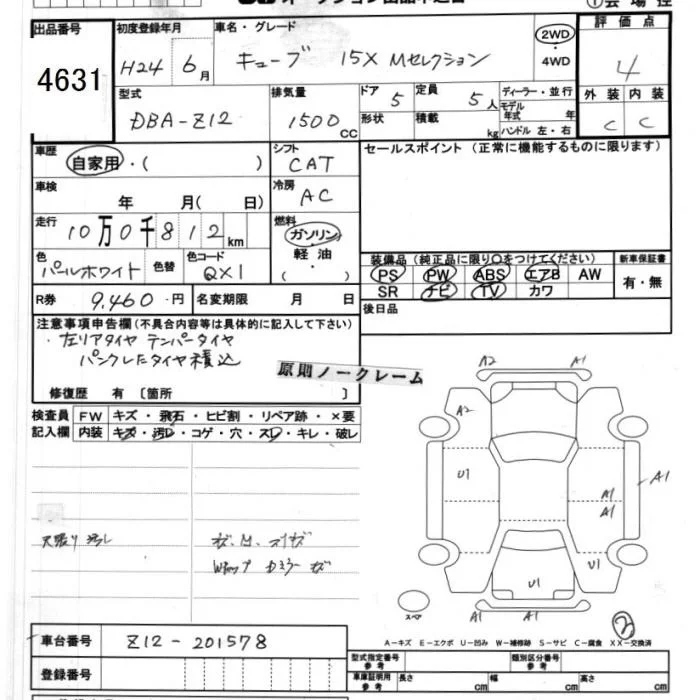 出品番号 初度登録年月 車名・グレード 評価点
4631 H24 6月 キューブ 15X Mセレクション 2WD・4WD 4
型式 排気量 ドア 定員 ディーラー・並行 外装 内装
DBA-Z12 1500CC 5 5人 モデル年式 年 C C
形状 積載 kg ハンドル 左・右
車歴 シフト セールスポイント(正常に機能するものに限ります)
自家用・( ) CAT
車検 冷房
年 月( 日) AC
走行 燃料
10万0千812km ガソリン・
色 色替 色コード 軽油 装備品(純正品に限り○をつけてください) 新車保証書
パールホワイト QX1 ・( ) PS PW ABS エアB AW 有・無
R券 9.460・円 名変期限 月 日 SR ナビ TV カワ
注意事項申告欄(不具合内容等は具体的に記入して下さい) 後日品
・左リアタイヤ テンパータイヤ
パンクしたタイヤ積込
原則ノークレーム
修復歴 有〔箇所 〕
検査員 FW キズ・飛石・ヒビ割・リペア跡・×要
記入欄 内装 キズ・汚レ・コゲ・穴・スレ・キレ・破レ
A2 A1
A2
U1 A1
A1
A1
天張り汚し
U1
U1
A1 A1
スペア
A-キズ E-エクボ U-凹み W-補修跡 S-サビ C-腐食 XX-交換済
車台番号 Z12-201578
登録番号
型式指定番号 参考 類別区分番号 参考
車庫証明用 参考 長さ cm 幅 cm 高さ cm